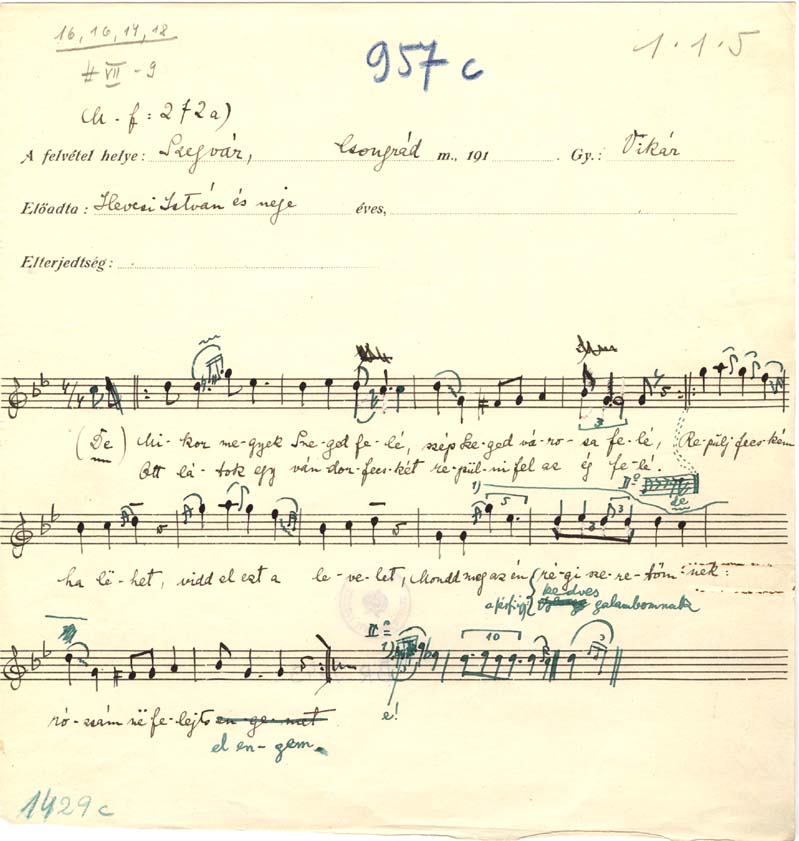 16, 16, 14, 18
VII - 9
957 c
1.1.5
(M. f: 272a)
A felvétel helye: Szegvár, Csongrád m., 191 . Gy.: Vikár
Előadta: Hevesi István és neje éves,
Elterjedtség:
(De) Mi-kor me-gyek Sze-ged fe-lé, szép Sze-ged vá-ro-sa fe-lé, Re-pülj fecs-kém
Ott lá-tok egy ván-dor-fecs-két re-pül-ni fel az ég fe-lé.
3
IIº
de
1)
5
3
ha lë-het, vidd el ezt a le-ve-let, Mondd meg az én régi sze-re-tőm-nek:
kedves
galambomnak
IIº
1)
10
ró-zsám në fe-lejts en-ge-met
el en-gem.
e!
1429 c